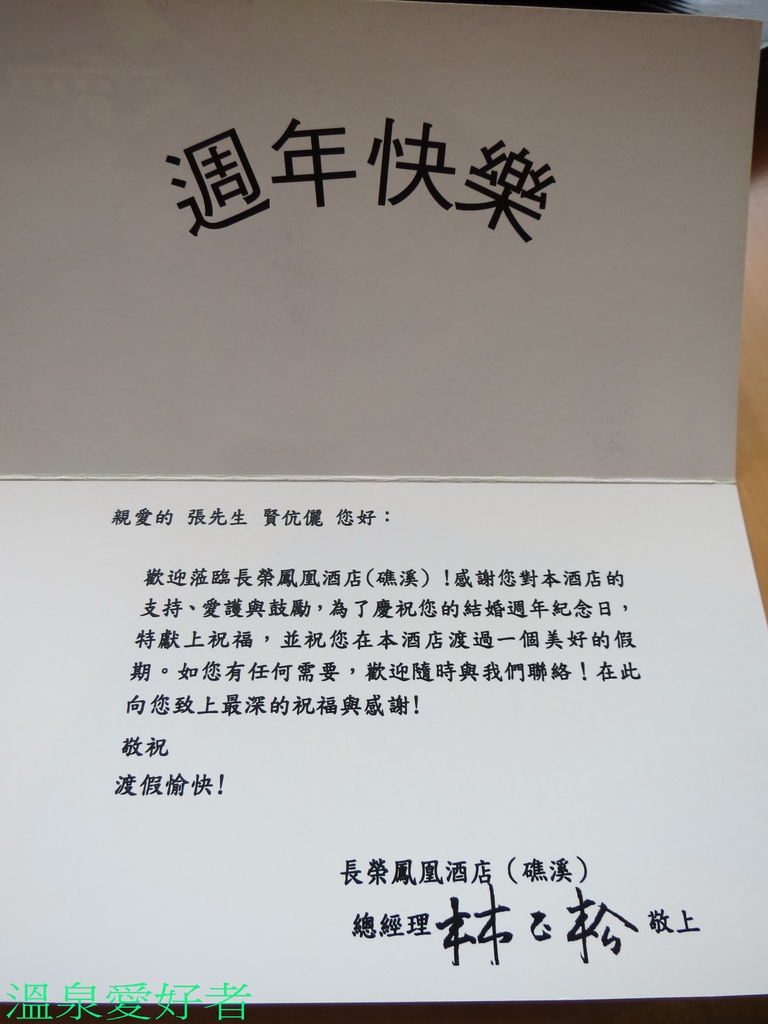 週年快樂
親愛的 張先生 賢伉儷 您好：
歡迎蒞臨長榮鳳凰酒店(礁溪) !感謝您對本酒店的
支持、愛護與鼓勵，為了慶祝您的結婚週年紀念日，
特獻上祝福，並祝您在本酒店渡過一個美好的假
期。如您有任何需要，歡迎隨時與我們聯絡！在此
向您致上最深的祝福與感謝!
敬祝
渡假愉快!
長榮鳳凰酒店（礁溪）
總經理 林正松 敬上
溫泉愛好者